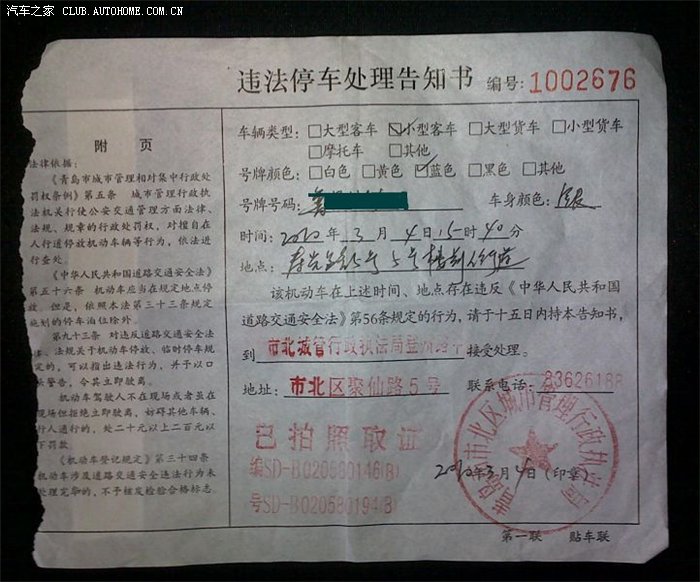 汽车之家 CLUB.AUTOHOME.COM.CN
违法停车处理告知书 编号：1002676
附 页
法律依据：
《青岛市城市管理相对集中行政处
罚权条例》第五条 城市管理行政执
法机关行使公安交通管理方面法律、
法规、规章的行政处罚权，对擅自在
人行道停放机动车辆等行为，依法进
行查处。
《中华人民共和国道路交通安全法》
第五十六条 机动车应当在规定地点停
放。但是，依照本法第三十三条规定
施划的停车泊位除外。
第九十三条 对违反道路交通安全法
律、法规关于机动车停放、临时停车规
定的，可以指出违法行为，并予以口
头警告，令其立即驶离。
机动车驾驶人不在现场或者虽在
现场但拒绝立即驶离，妨碍其他车辆、
行人通行的，处二十元以上二百元以
下罚款
《机动车登记规定》第三十四条
机动车涉及道路交通安全违法行为未
处理完毕的，不予核发检验合格标志
车辆类型：□大型客车 ☑小型客车 □大型货车 □小型货车
□摩托车 □其他
号牌颜色：□白色 □黄色 ☑蓝色 □黑色 □其他
号牌号码：鲁 车身颜色：银
时间：2010年3月4日15时40分
地点：5号楼前人行道
该机动车在上述时间、地点存在违反《中华人民共和国
道路交通安全法》第56条规定的行为，请于十五日内持本告知书，
到 市北城管行政执法局登州路中 接受处理。
地址：市北区聚仙路5号 联系电话：83626188
已拍照取证
编SD-B020580146(B)
号SD-B020580194(B)
青岛市市北区城市管理行政执法局
2010年3月4日（印章）
第一联 贴车联